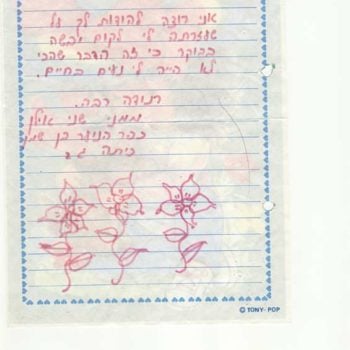 אני רוצה להודות לך על
שעזרתה לי לקום יבשה
בבוקר כי זה הדבר שהכי
לא היה לי נעים בחיים.
תודה רבה.
ממני שני אילן
כפר הנוער בן שמן
כיתה ג 2
© TONY-POP